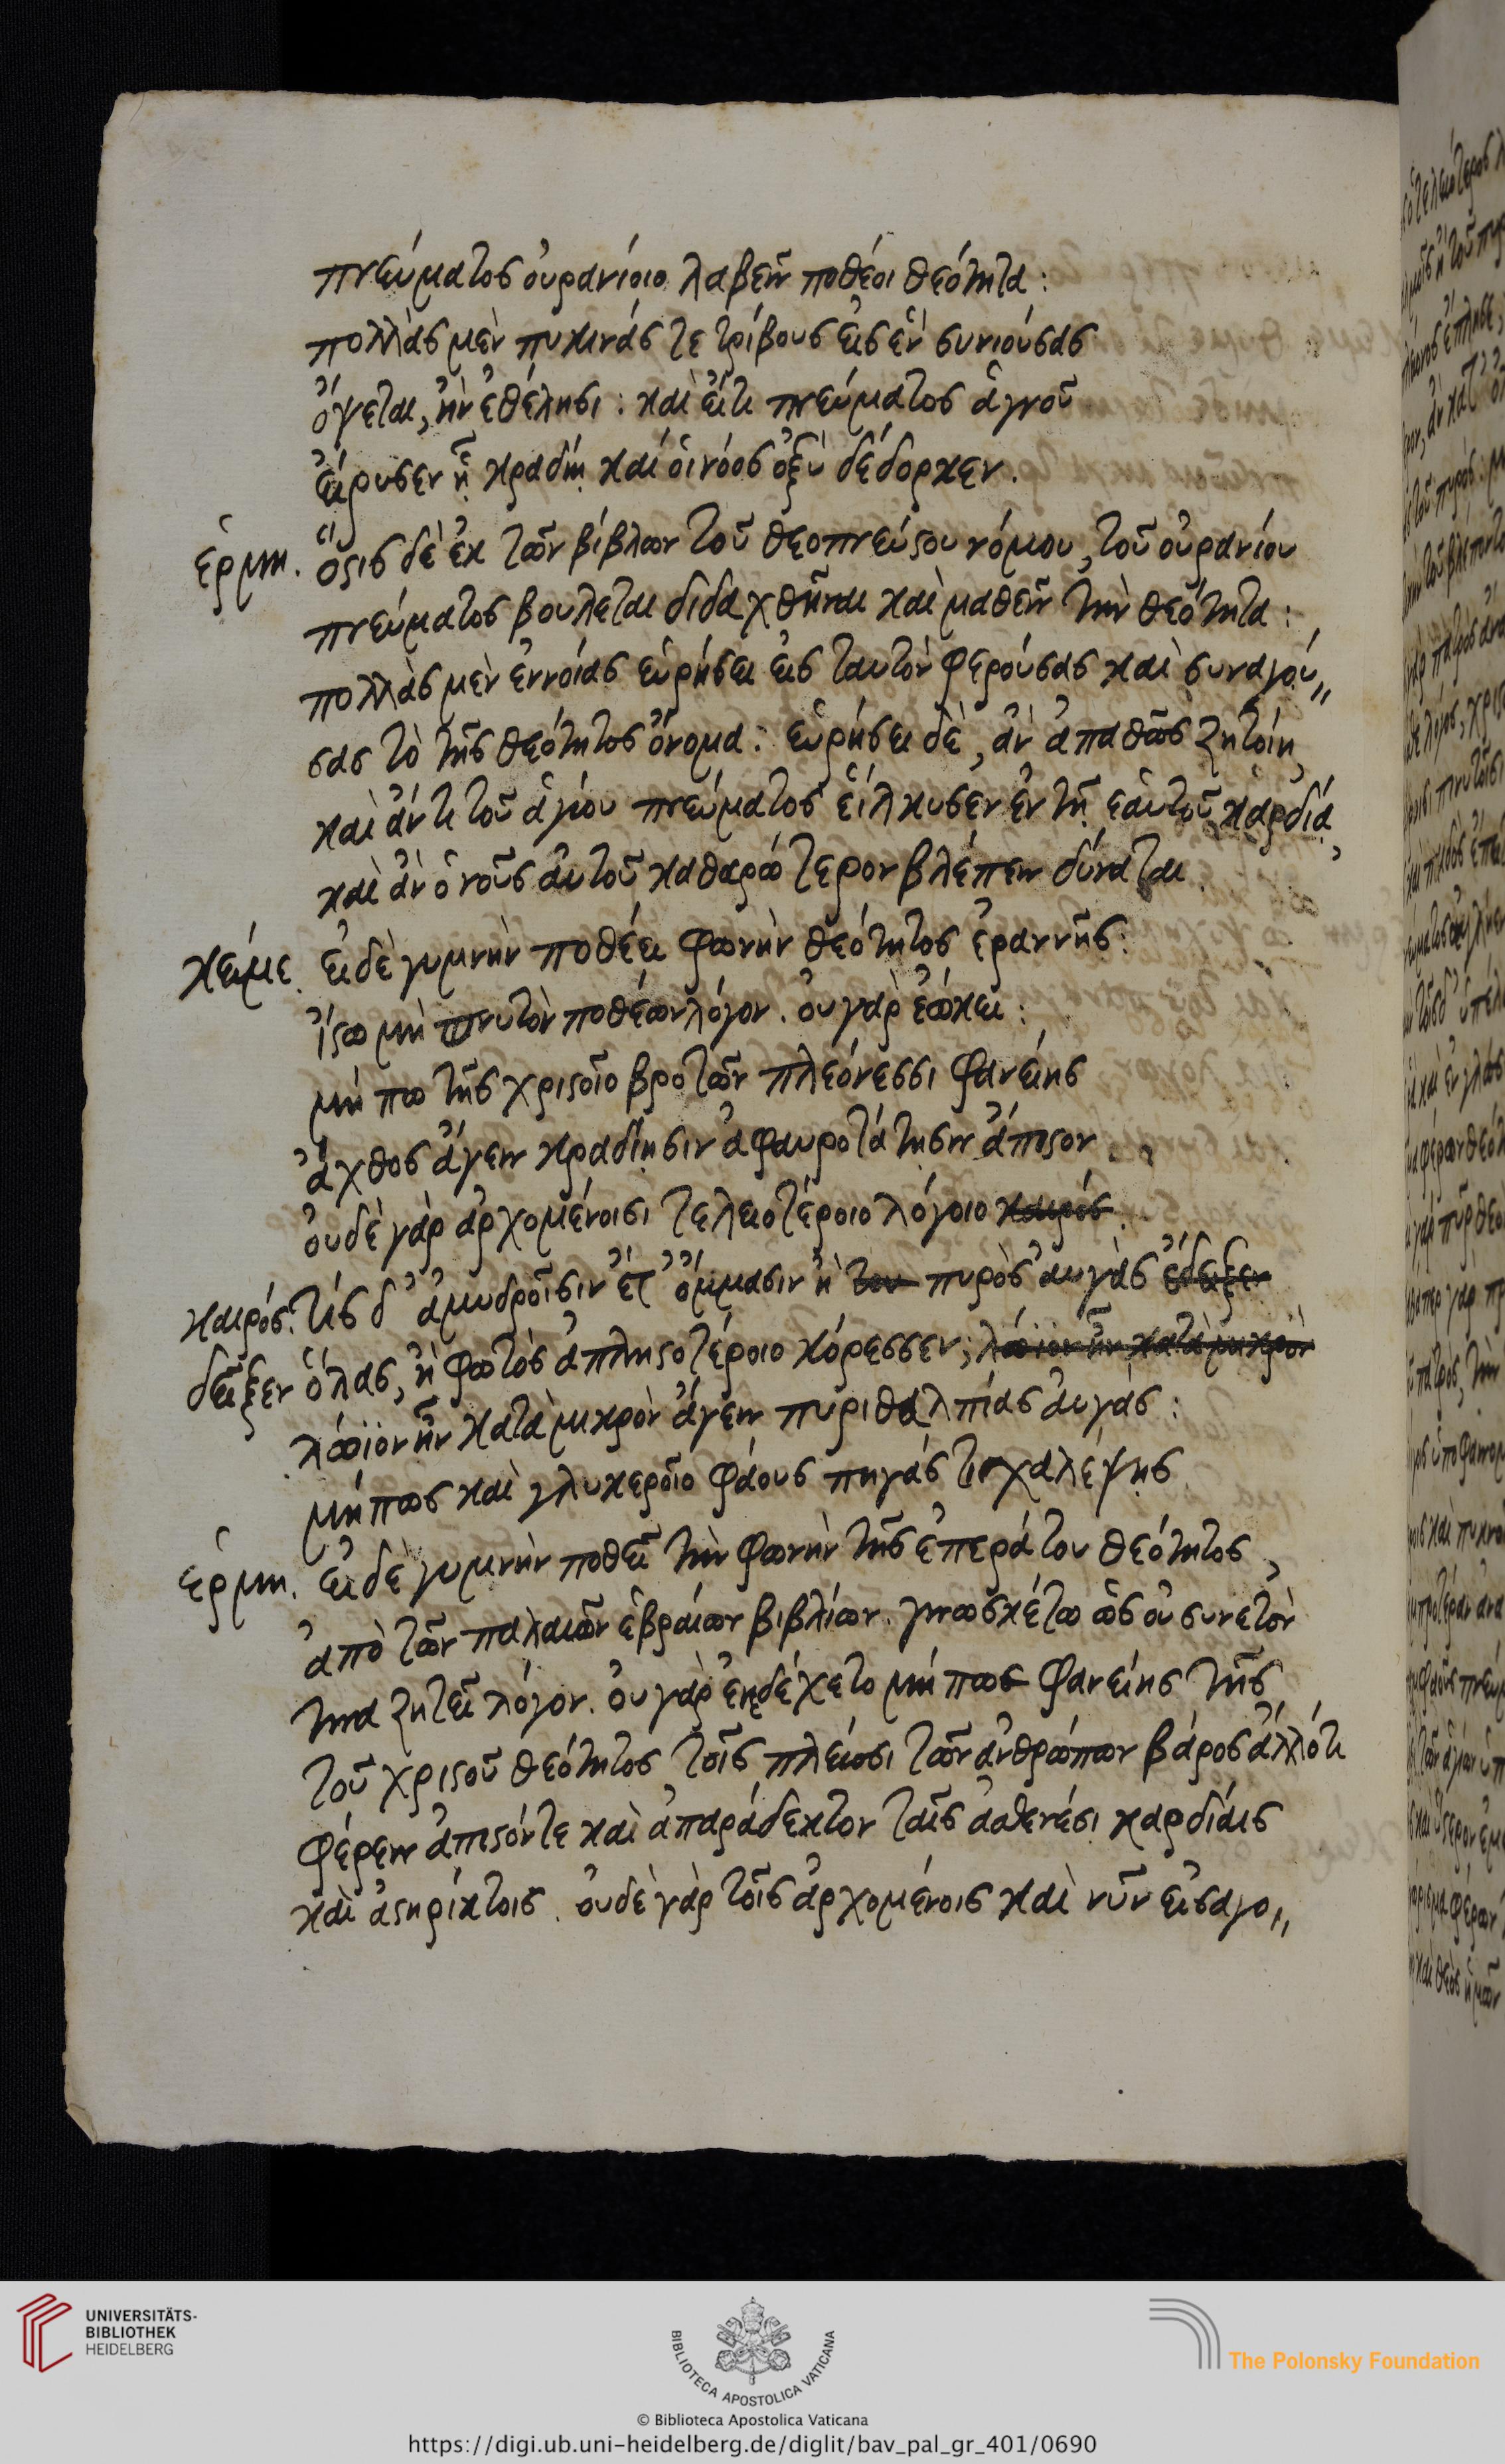 πνεύματος οὐρανίοιο λαβεῖν ποθέοι θεότητα:
πολλὰς μὲν πυκινάς τε τρίβους εἰς ἓν συνιούσας
ὄψεται, ἢν ἐθέλησι: καὶ εἴ τι πνεύματος ἁγνοῦ
εἴρυσεν ᾗ κραδίῃ καί οἱ νόος ὀξὺ δέδορκεν.
ἑρμη. ὅστις δὲ ἐκ τῶν βίβλων τοῦ θεοπνεύστου νόμου, τοῦ οὐρανίου
πνεύματος βουλεται διδαχθῆναι καὶ μαθεῖν τὴν θεότητα:
πολλὰς μὲν ἐννοίας εὑρήσει εἰς ταυτὸν φερούσας καὶ συναγού,,
σας τὸ τῆς θεότητος ὄνομα: εὑρήσει δὲ, ἂν ἀπαθῶς ζητοίη,
καὶ ἄν τι τοῦ ἁγίου πνεύματος εἵλκυσεν ἐν τῇ ἑαυτοῦ καρδίᾳ,
καὶ ἂν ὁ νοῦς αὐτοῦ καθαρώτερον βλέπειν δύναται.
κείμε. εἰ δὲ γυμνὴν ποθέει φωνὴν θεότητος ἐραννῆς:
ἴστω μὴ πινυτὸν ποθέων λόγον. οὐ γὰρ ἐώκει:
μή πω τῆς χριστοῖο βροτῶν πλεόνεσσι φανείης
ἄχθος ἄγειν κραδίησιν ἀφαυροτάτησιν ἄπιστον.
οὐδὲ γὰρ ἀρχομένοισι τελειοτέροιο λόγοιο καιρός.
καιρός. τίς δ' ἀμυδροῖσιν ἔτ' ὄμμασιν ἢ του πυρὸς αὐγὰς ἔδειξεν
δεῖξεν ὅλας, ἢ φωτὸς ἀπληστοτέροιο κόρεσσεν; λώϊον ἦν κατὰ μικρὸν
λώϊον ἦν κατὰ μικρὸν ἄγειν πυριθαλπέας αὐγάς:
μή πως καὶ γλυκεροῖο φάους πηγάς τι χαλέψης
ἑρμη. εἰ δὲ γυμνὴν ποθεῖ τὴν φωνὴν τῆς ἐπεράτου θεότητος,
ἀπὸ τῶν παλαιῶν ἑβραίων βιβλίων. γινωσκέτω ὡς οὐ συνετόν
τινα ζητεῖ λόγον. οὐ γὰρ ἐνεδέχετο μήπως φανείης τῆς
τοῦ χριστοῦ θεότητος τοῖς πλείοσι τῶν ἀνθρώπων βάρος ἄλλό τι
φέρειν ἄπιστόν τε καὶ ἀπαράδεκτον ταῖς ἀσθενέσι καρδίαις
καὶ ἀστηρίκτοις. οὐδὲ γὰρ τοῖς ἀρχομένοις καὶ νῦν εἰσαγο,,
UNIVERSITÄTS-
BIBLIOTHEK
HEIDELBERG
BIBLIOTECA APOSTOLICA VATICANA
The Polonsky Foundation
© Biblioteca Apostolica Vaticana
https://digi.ub.uni-heidelberg.de/diglit/bav_pal_gr_401/0690